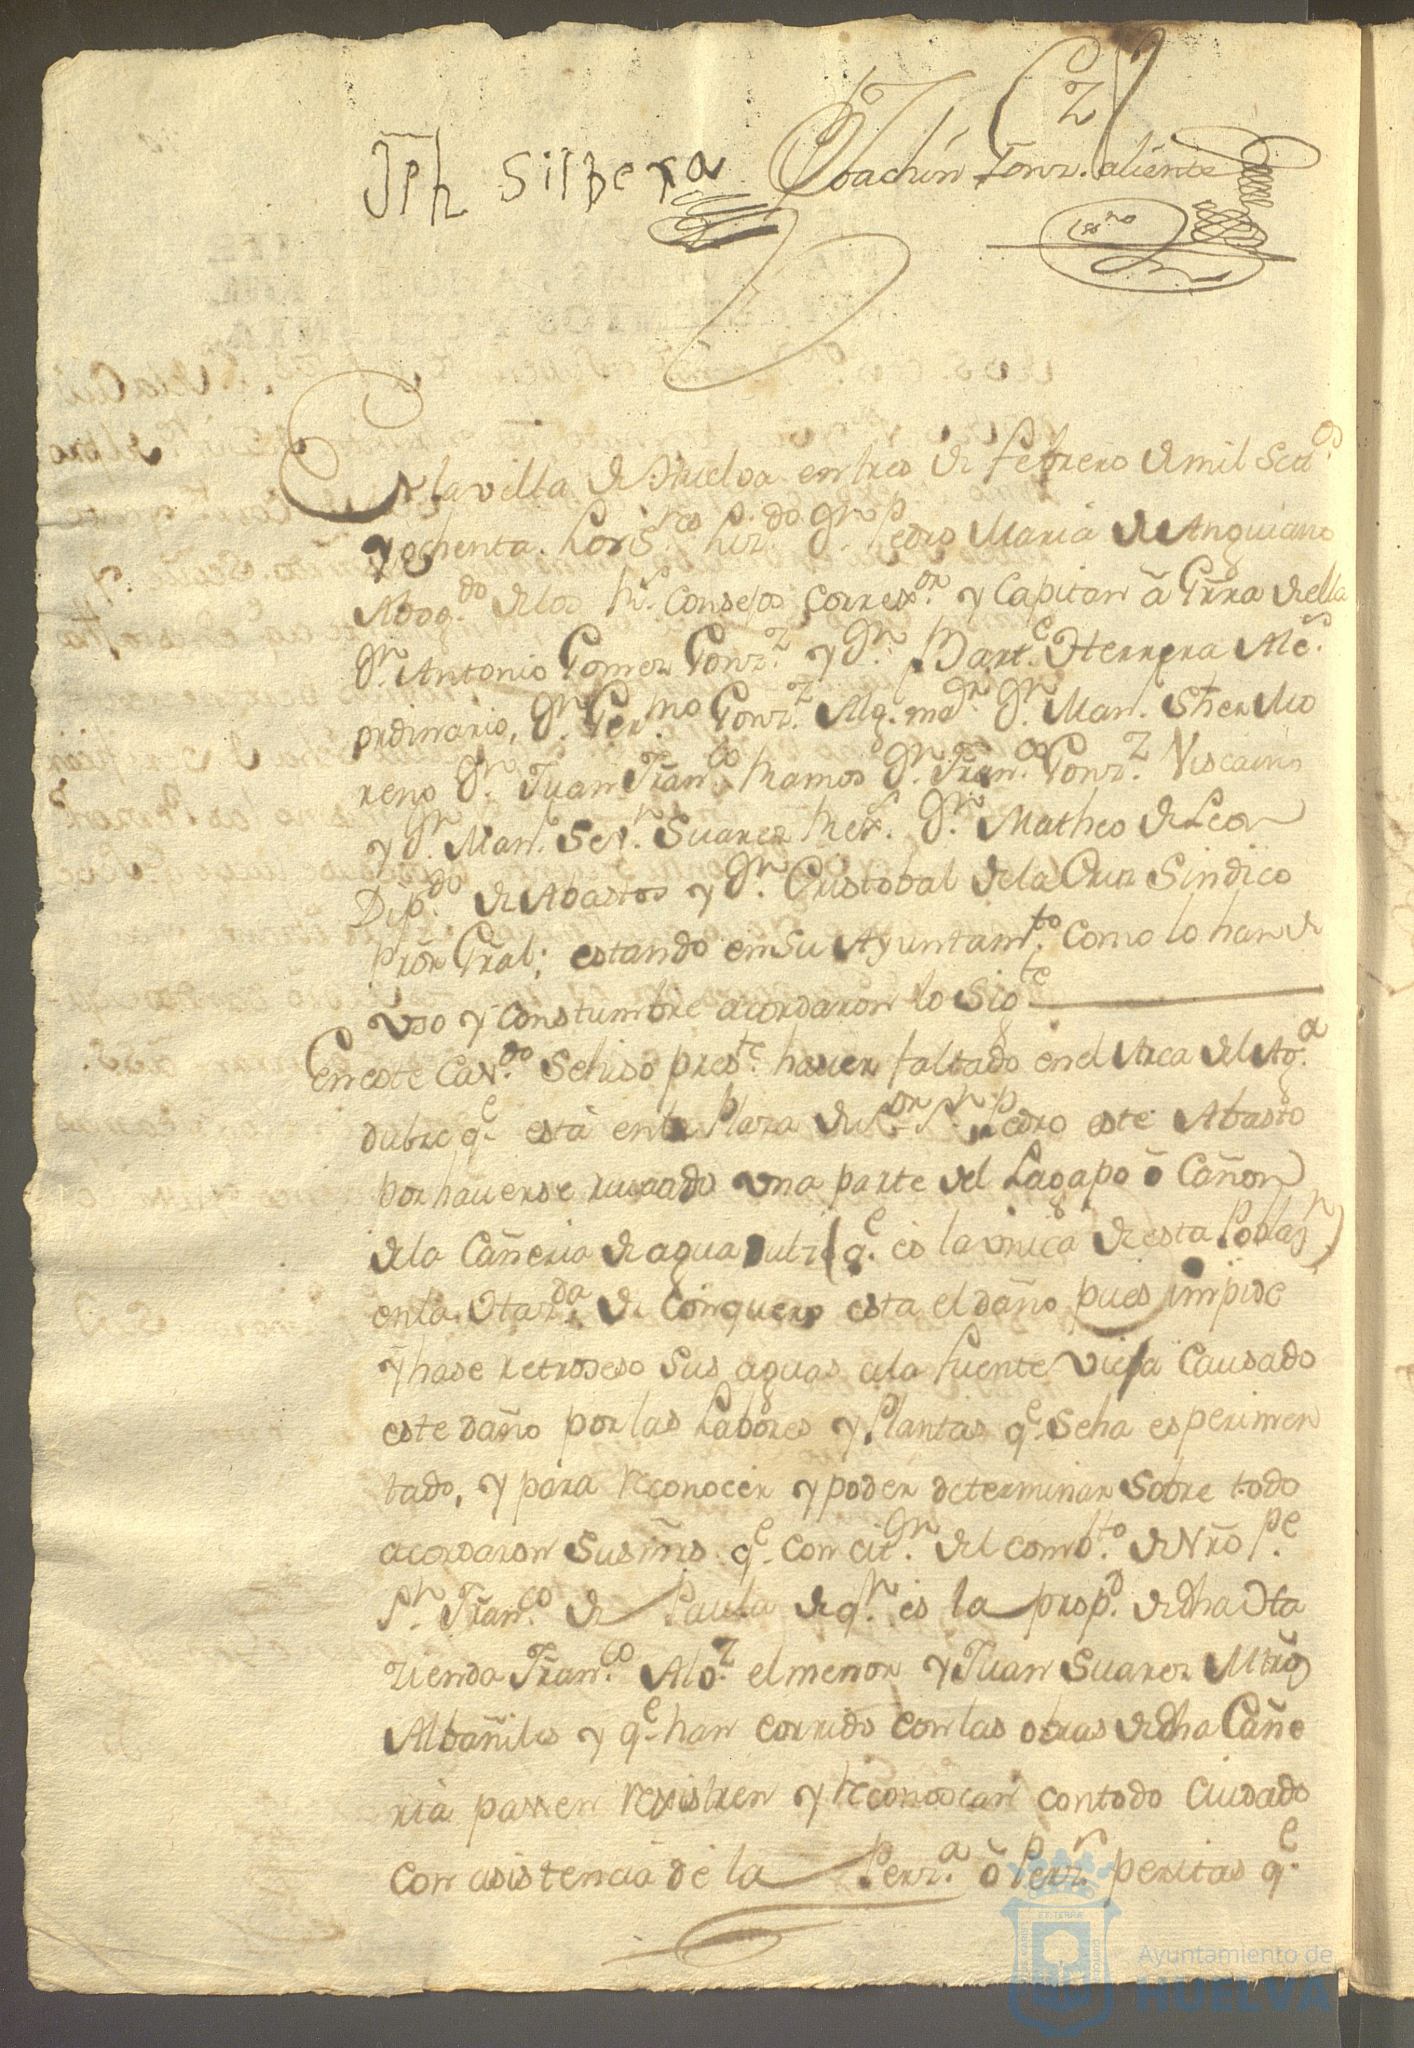 Jph Silbera Joachin Gonz. aliente
En la villa de Huelva en tres de febrero de mil setos
y ochenta. Los S.res Liz.do Dn Pedro Maria de Anguiano
Abog.do de los R.s Consejos Correx.or y Capitan â Grra de ella
Dn. Antonio Gomez Gonz.z y Dn. Bart.e Herrera Alc.s
ordinario, Dn. Ger.mo Gonz.z Alg. mor. Dn. Man. Sher Mo
reno Dn. Juan Fran.co Ramos Dn. Fran.co Gonz.z Viscaino
y Dn. Man. Sev.n Suarez Rex.s Dn. Matheo de Leon
Dip.do de Abastos y Dn. Cristobal de la Cruz Sindico
Pror Gral; estando en su Ayuntam.to como lo han de
uso y constumbre acordaron lo Sig.te
En este Cav.do se hiso pres.te haver faltado en el Arca del Ag.a
dulze q.e està en la Plaza de S.or S.n Pedro este Abasto
por haverse una parte del Lagapo ô Cañon
de la Cañeria de agua dulze (q.e es la unica de esta Poblas.n)
en la Haz.da de Conquero esta el daño pues impide
y hase retroseso sus aguas a la fuente vieja causado
este daño por las Labores y Plantas q.e se ha esperimen
tado, y para reconocer y poder determinar sobre todo
acordaron sus mrs. q.e con cit.on del comb.to de Nro P.e
S.n Fran.co de Paula de q.n es la prop.d de dha Ha
zienda Fran.co Alo.z el menor y Juan Suarez Mtros
Albañiles y q.e han corrido con las obras de dha Cañe
ria passen rexistren y reconoscan con todo cuidado
con asistencia de la Perz.a ô Perz.s peritas q.e
Ayuntamiento de
HUELVA